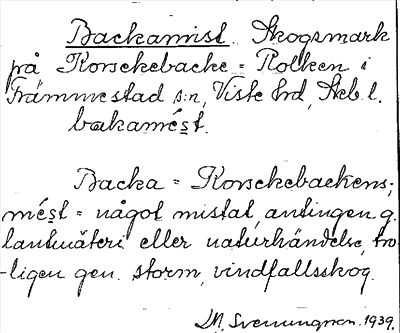 Backamist. Skogsmark
på Korsekebacke = Rolken i
Främmestad s:n, Viste hrd, Skb. l.
bakamést.
Backa = Korsekebackens;
mést = något mistat, antingen g.
lantmäteri eller naturhändelse, tro-
-ligen gen. storm, vindfallsskog.
M. Svenungsson. 1939.